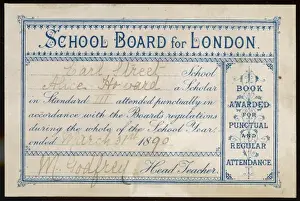 SCHOOL BOARD for LONDON.
Earl Street School
Alice Howard a Scholar
in Standard III attended punctually in
accordance with the Board's regulations
during the whole of the School Year,
ended March 31st 1890
W. Godfrey Head Teacher.
BOOK
AWARDED
FOR
PUNCTUAL
AND
REGULAR
ATTENDANCE